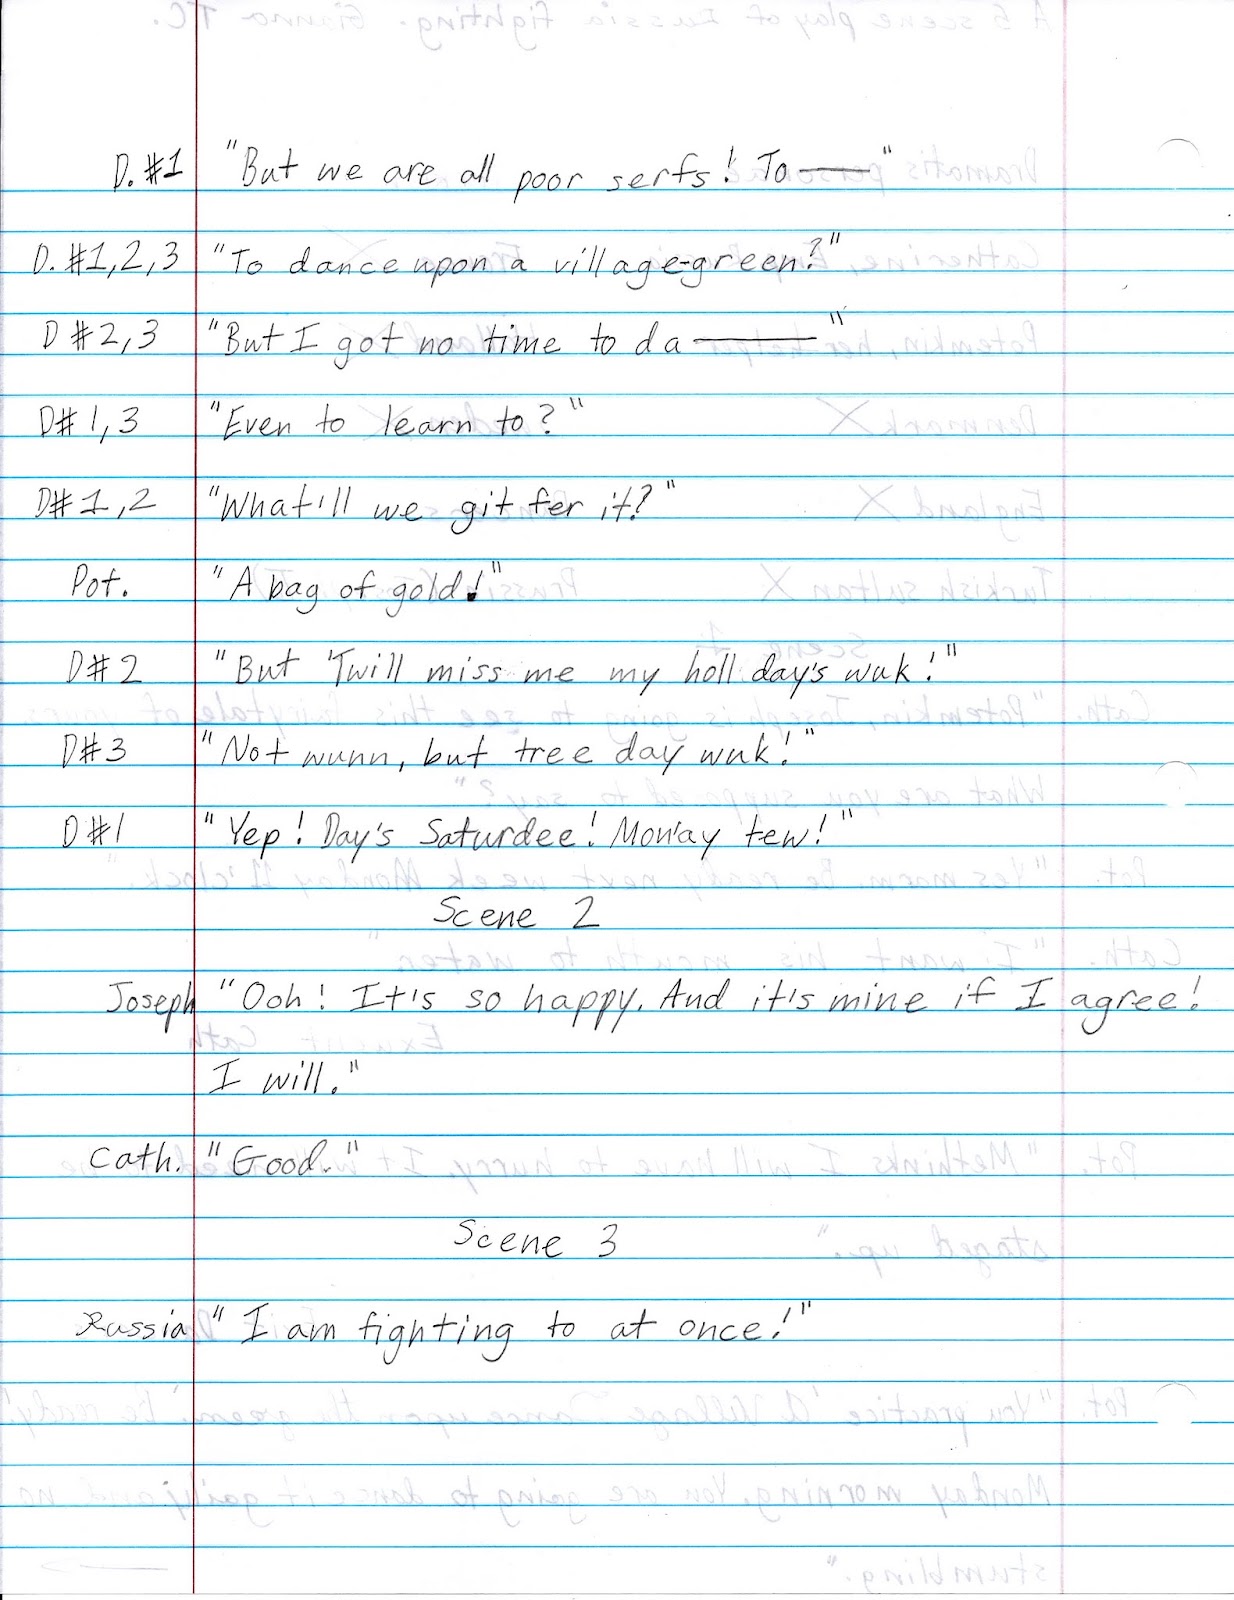 D. #1 "But we are all poor serfs! To ——"
D. #1,2,3 "To dance upon a village-green?"
D #2,3 "But I got no time to da ———"
D# 1,3 "Even to learn to?"
D# 1,2 "What'll we git fer it?"
Pot. "A bag of gold!"
D# 2 "But 'Twill miss me my holl day's wuk!"
D# 3 "Not wunn, but tree day wuk!"
D #1 "Yep! Day's Saturdee! Mon'ay tew!"
Scene 2
Joseph "Ooh! It's so happy. And it's mine if I agree!
I will."
Cath. "Good."
Scene 3
Russia "I am fighting to at once!"